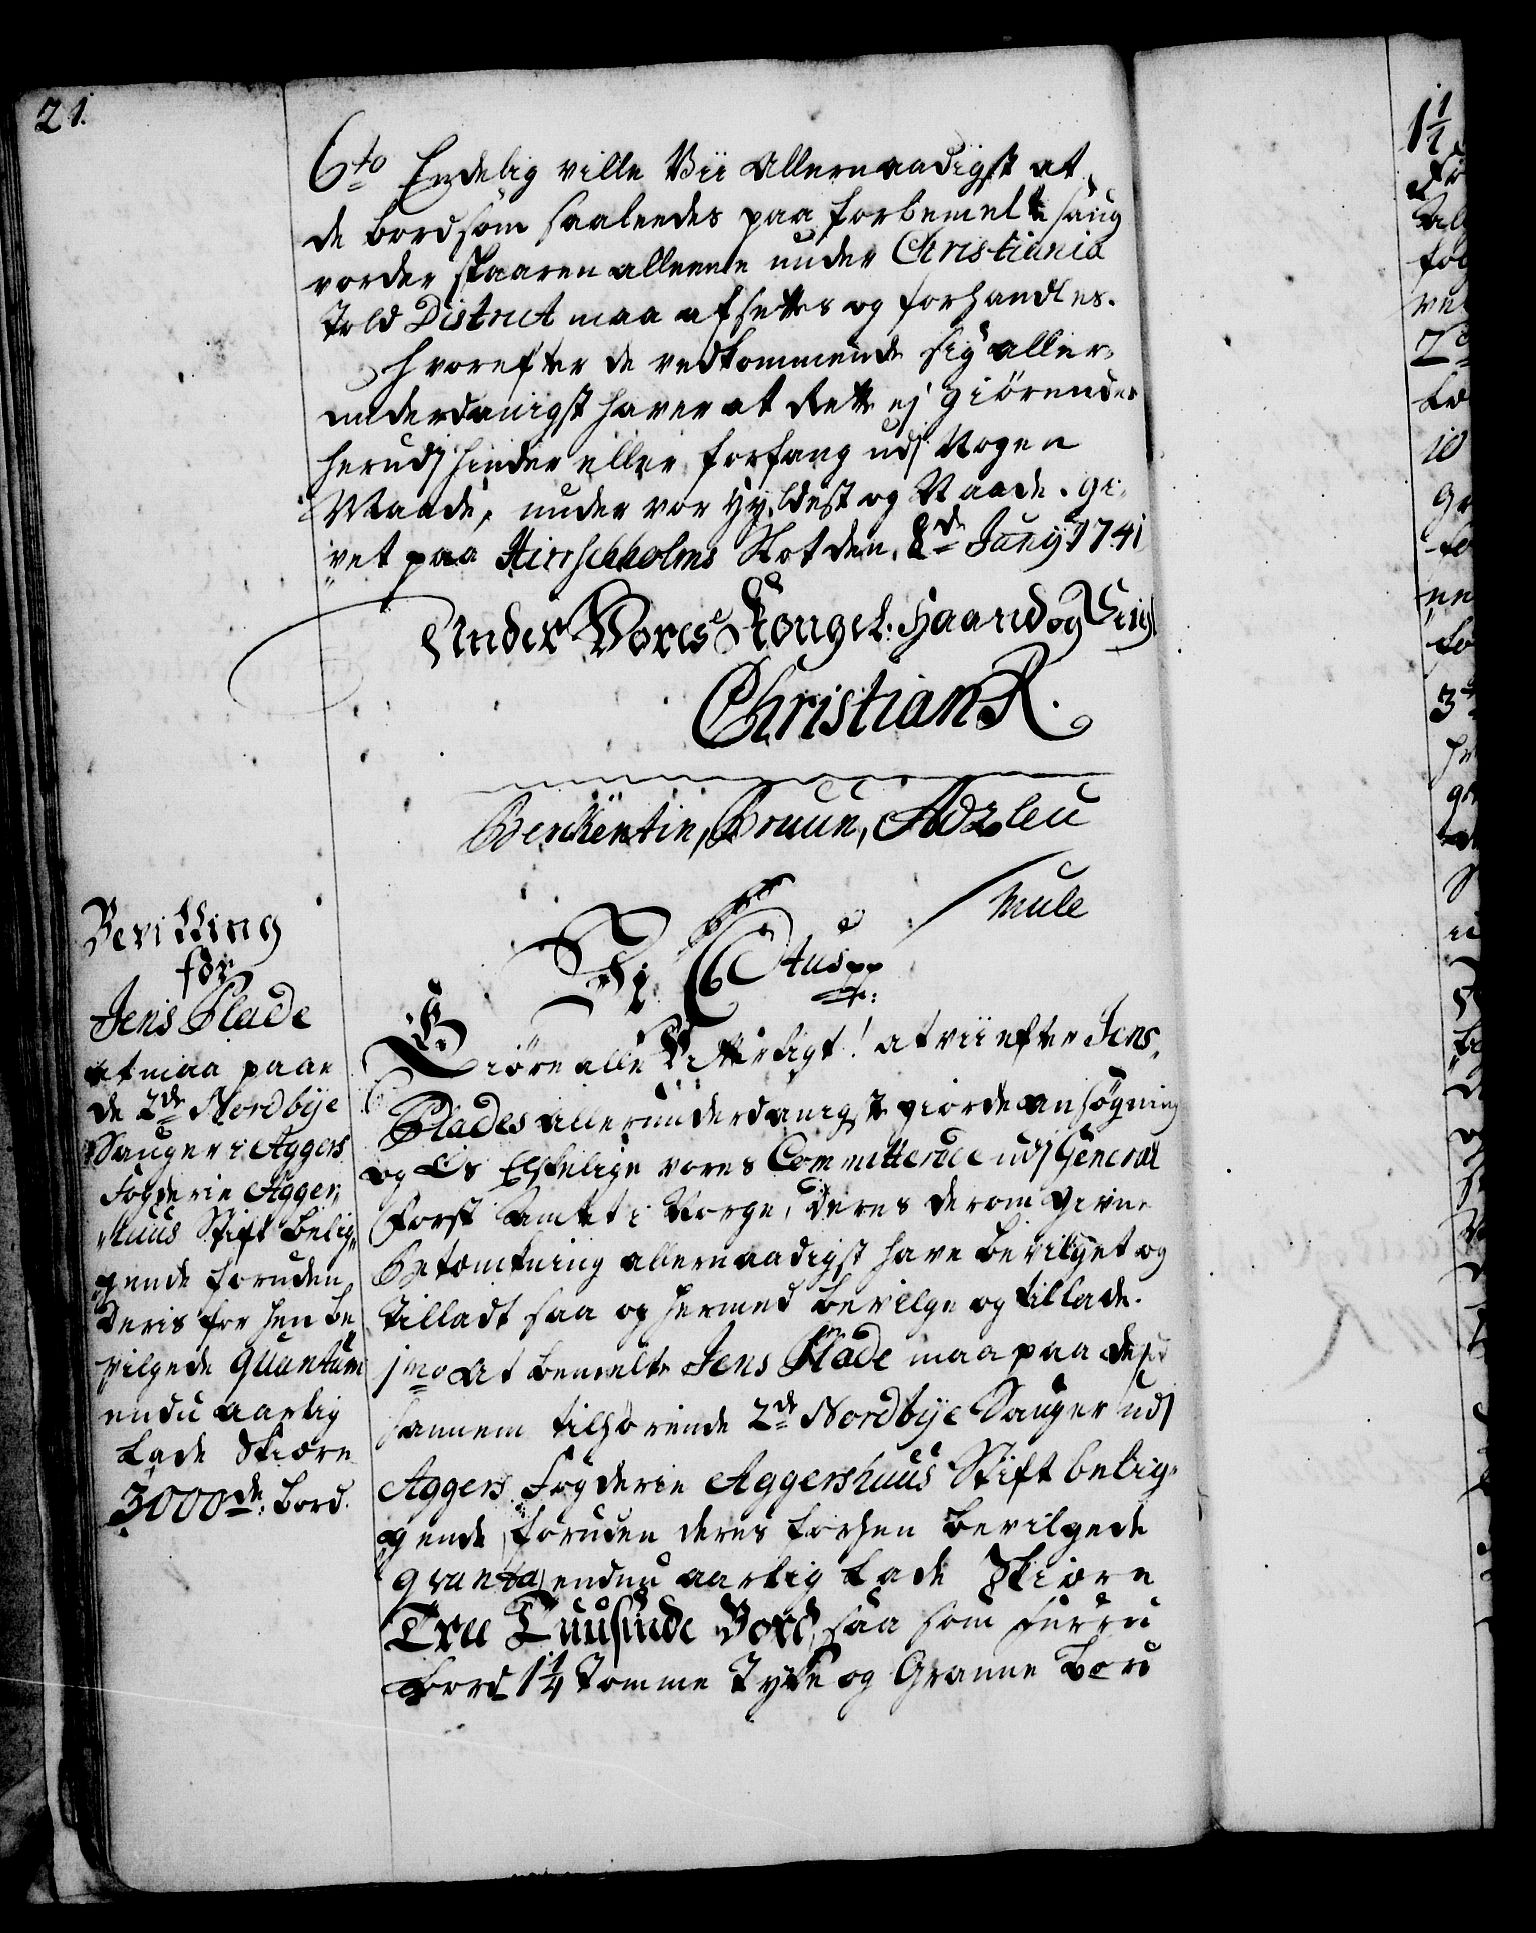 21.
6to Endelig ville Vii Allernaadigst at
de bord som saaleedes paa forbemelte saug
vorder skaaren alleene under Christiania
Told District maa afsettes og forhandles.
Hvorefter de vedkommende sig aller,
underdanigst haver at Rette ej giörendes
herudj hinder eller forfang udj Nogen
Maade, under vor Hyldest og Naade. gi,
vet paa Hirschholms Slot den, 8de Junij 1741
Under Vores Kongel: Haand og Seigl
Christian R.
Berckentin, Bruun, Adzleu
Mule
Bevilling
for
Jens Plade
at maa paa
de 2de Nordbye
Sauger i Aggers
Fogderie Agger,
Huus Stift belig,
gende foruden
deris forhen be
vilgede Quantum
endu aarlig
Lade Skiære
3000de: bord.
Vj C 6tus pp
Giöre alle Vitterligt! at vii efter Jens,
Plades allerunderdanigst giorde ansögning
og Os Elskelige vores Committerede udj General
Forst Amtet i Norge, deres derom givne
Betænkning allernaadigst have bevilget og
Tilladt saa og hermed bevilge og tillade.
1mo At bemelte Jens Plade maa paa de
hannem tilhörende 2de Nordbye Sauger udj
Aggers Fogderie Aggershuus Stift belig,
gende, foruden deres forhen bevilgede
qvanta, endnu aarlig lade Skiære
Tree Tuusinde Bord, saa som furru
bord 1 1/4 Tomme Tyke og Granne bord